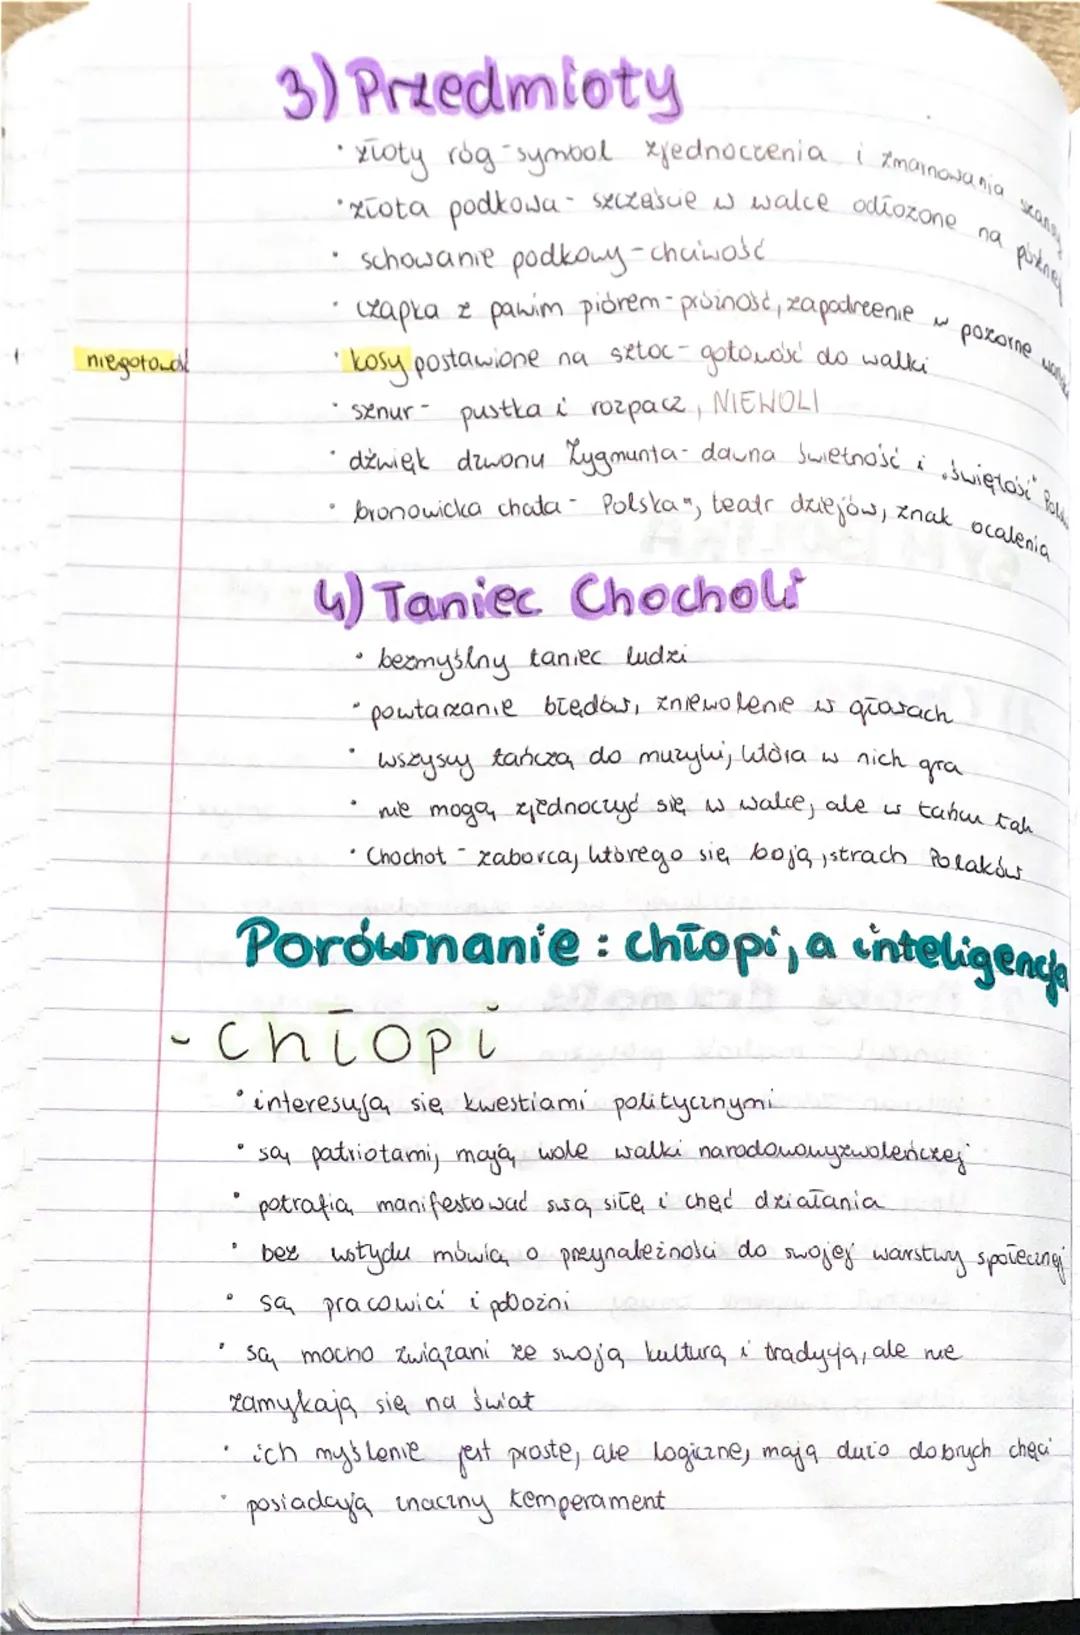 3) Przedmioty
• złoty róg - symbol zjednoczenia i zmarnowania szansy
• złota podkowa - szczęście w walce odłożone na później
• schowanie podkowy - chciwość
• czapka z pawim piórem - próżność, zapatrzenie w pozorne
niegotowość • kosy postawione na sztoc - gotowość do walki
• sznur - pustka i rozpacz, NIEWOLI
• dźwięk dzwonu Zygmunta - dawna świetność i „świętość" Polski
• bronowicka chata - Polska", teatr dziejów, znak ocalenia
4) Taniec Chocholi
• bezmyślny taniec ludzi
• powtarzanie błędów, zniewolenie w głowach
• wszyscy tańczą do muzyki, która w nich gra
• nie mogą zjednoczyć się w walce, ale w tańcu tak
• Chochoł - zaborca, którego się boją, strach Polaków
Porównanie: chłopi, a inteligencja
- Chłopi
• interesują się kwestiami politycznymi
• są patriotami, mają wole walki narodowowyzwoleńczej
• potrafią manifestować swą siłę i chęć działania
• bez wstydu mówią o przynależności do swojej warstwy społecznej
• są pracowici i pobożni
• są mocno związani ze swoją kulturą i tradycją, ale nie
zamykają się na świat
• ich myślenie jest proste, ale logiczne, mają dużo dobrych chęci
• posiadają znaczny temperament